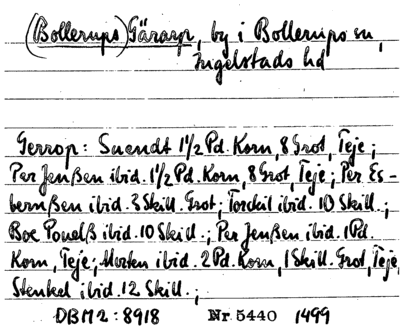 (Bollerups) Gärarp, by i Bollerups sn,
Ingelstads hd
Gerrop: Suendt 1 1/2 Pd. Korn, 8 Grot, Teje;
Per Jenßen ibid. 1 1/2 Pd. Korn, 8 Grot, Teje; Per Es-
bernßen ibid. 3 Skill. Grot; Torckil ibid. 10 Skill.;
Boe Pouelß ibid. 10 Skill.; Per Jenßen ibid. 1 Pd.
Korn, Teje; Morten ibid. 2 Pd. Korn, 1 Skill. Grot, Teje,
Stenkel ibid. 12 Skill.;
DBM2: 8918 Nr. 5440 1499